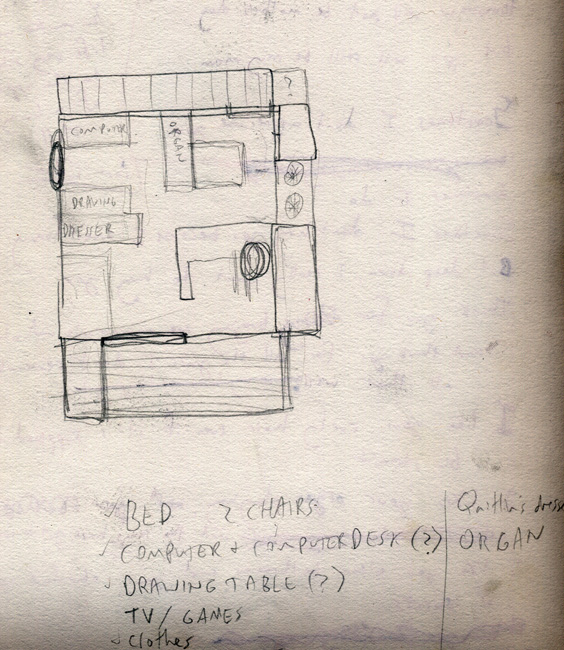 ?
COMPUTER
ORGAN
DRAWING
DRESSER
✓ BED 2 CHAIRS
✓ COMPUTER + COMPUTERDESK (?)
✓ DRAWING TABLE (?)
TV/GAMES
✓ Clothes
ORGAN